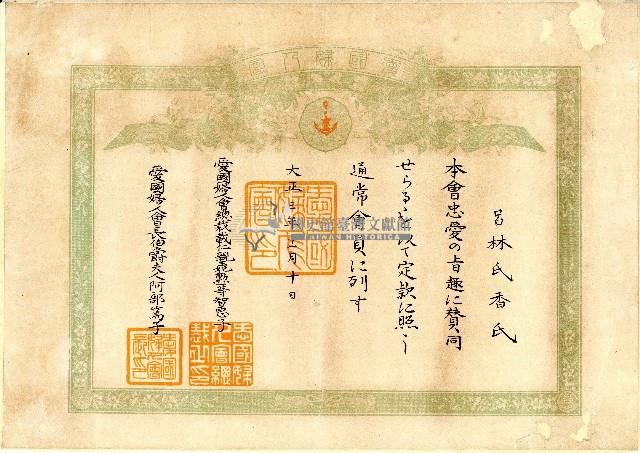 呂林氏香氏
本會忠愛の旨趣に賛同
せらるゝを以て定款に照し
通常會員に列す
大正三年十二月十日
愛國婦人會總裁載仁親王妃勲一等智恵子
愛國婦人會長伯爵夫人阿部篤子
國史館臺灣文獻館
TAIWAN HISTORICA